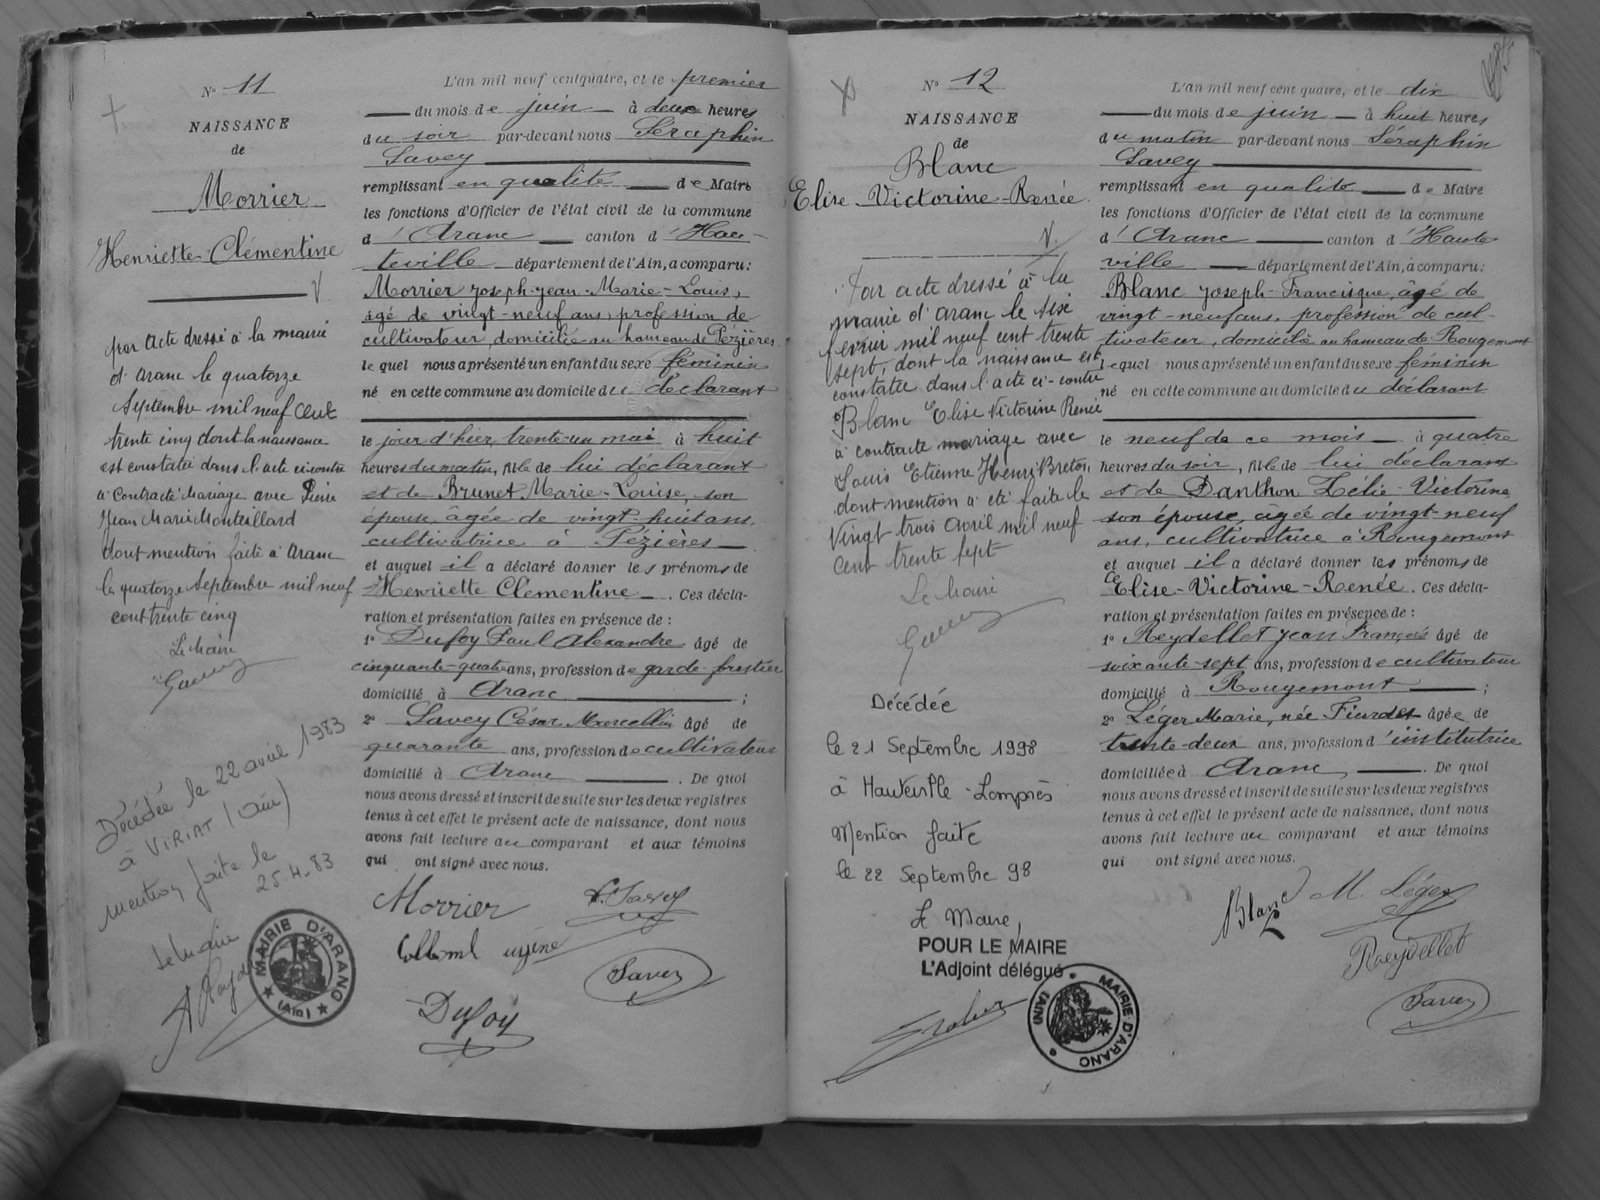 N° 11
NAISSANCE
de
Morrier
Henriette-Clémentine
par acte dressé à la mairie
d'Aranc le quatorze
Septembre mil neuf cent
trente cinq dont la naissance
est constatée dans l'acte ci-contre
a contracté mariage avec Pierre
Jean Marie Monteillard
dont mention faite à Aranc
le quatorze Septembre mil neuf
cent trente cinq
Le Maire
Décédée le 22 avril 1983
à VIRIAT (Ain)
mention faite le
25.4.83
Le Maire
MAIRIE D'ARANC
(Ain)
L'an mil neuf cent quatre, et le premier
du mois de juin à deux heures
du soir par-devant nous Séraphin
Savey
remplissant en qualité de Maire
les fonctions d'Officier de l'état civil de la commune
d'Aranc canton d'Hau-
teville département de l'Ain, a comparu:
Morrier Joseph-Jean-Marie-Louis,
âgé de vingt-neuf ans, profession de
cultivateur domicilié au hameau de Pézières
lequel nous a présenté un enfant du sexe féminin
né en cette commune au domicile du déclarant
le jour d'hier, trente-un mai à huit
heures du matin, fille de lui déclarant
et de Brunet Marie-Louise, son
épouse, âgée de vingt-huit ans,
cultivatrice à Pézières
et auquel il a déclaré donner les prénoms de
Henriette Clémentine. Ces décla-
ration et présentation faites en présence de :
1° Dufoy Paul Alexandre âgé de
cinquante-quatre ans, profession de garde-forestier
domicilié à Aranc ;
2° Savey César Marcellin âgé de
quarante ans, profession de cultivateur
domicilié à Aranc. De quoi
nous avons dressé et inscrit de suite sur les deux registres
tenus à cet effet le présent acte de naissance, dont nous
avons fait lecture au comparant et aux témoins
qui ont signé avec nous.
Morrier
Savey
Dufoy
N° 12
NAISSANCE
de
Blanc
Elise-Victorine-Renée
Par acte dressé à la
mairie d'Aranc le six
février mil neuf cent trente
sept, dont la naissance est
constatée dans l'acte ci-contre
Blanc Elise Victorine Renée
a contracté mariage avec
Louis Etienne Henri Breton,
dont mention a été faite le
Vingt trois Avril mil neuf
cent trente sept
Le Maire
Décédée
le 21 Septembre 1998
à Hauteville-Lompnès
Mention faite
le 22 Septembre 98
Le Maire,
POUR LE MAIRE
L'Adjoint délégué
MAIRIE D'ARANC
(AIN)
L'an mil neuf cent quatre, et le dix
du mois de juin à huit heures
du matin par-devant nous Séraphin
Savey
remplissant en qualité de Maire
les fonctions d'Officier de l'état civil de la commune
d'Aranc canton d'Haute
ville département de l'Ain, a comparu:
Blanc Joseph-Francisque, âgé de
vingt-neuf ans, profession de cul-
tivateur, domicilié au hameau de Rougemont
lequel nous a présenté un enfant du sexe féminin
né en cette commune au domicile du déclarant
le neuf de ce mois à quatre
heures du soir, fille de lui déclarant
et de Danthon Zélie-Victorine
son épouse, âgée de vingt-neuf
ans, cultivatrice à Rougemont
et auquel il a déclaré donner les prénoms de
Elise-Victorine-Renée. Ces décla-
ration et présentation faites en présence de :
1° Reydellet Jean François âgé de
soixante-sept ans, profession de cultivateur
domicilié à Rougemont ;
2° Léger Marie, née âgée de
trente-deux ans, profession d'institutrice
domiciliée à Aranc. De quoi
nous avons dressé et inscrit de suite sur les deux registres
tenus à cet effet le présent acte de naissance, dont nous
avons fait lecture au comparant et aux témoins
qui ont signé avec nous.
Blanc M. Léger
Reydellet
Savey